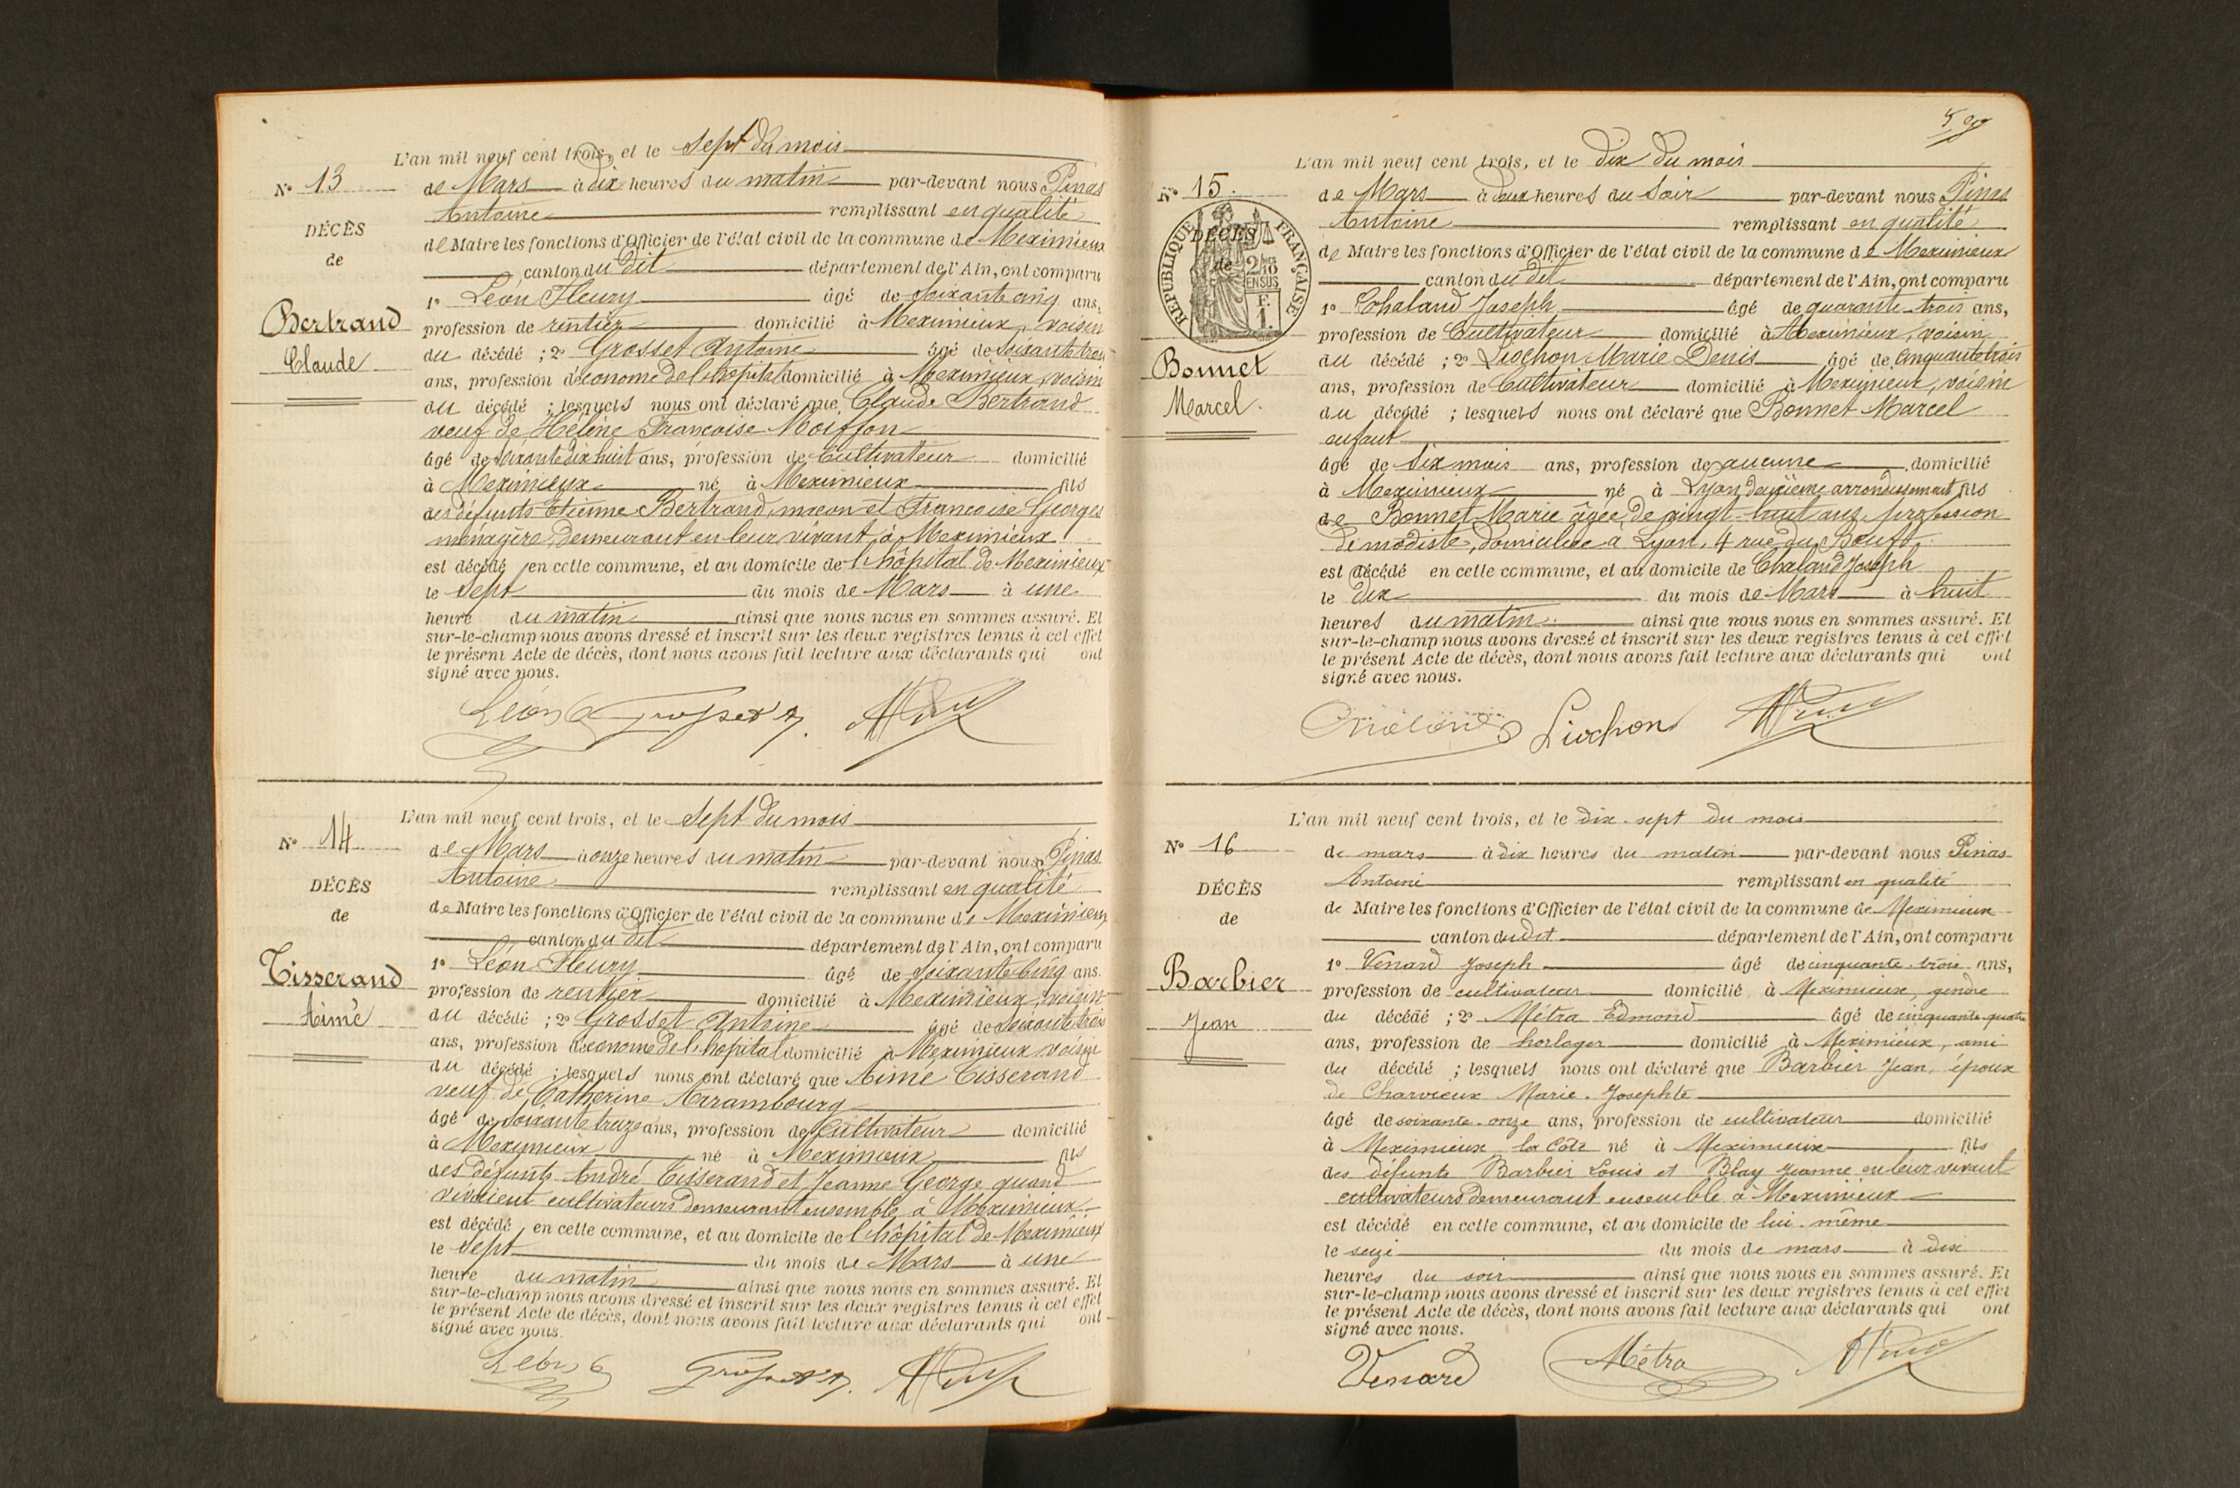 L'an mil neuf cent trois, et le sept du mois
N° 13
de Mars à dix heures du matin par-devant nous Pinas
Antoine remplissant en qualité
DÉCÈS
de Maire les fonctions d'Officier de l'état civil de la commune de Meximieux
de
canton du dit département de l'Ain, ont comparu
1° Léon Fleury âgé de soixante cinq ans,
Bertrand
profession de rentier domicilié à Meximieux, voisin
Claude
du décédé ; 2° Grosset Antoine âgé de soixante trois
ans, profession d'économe de l'hôpital domicilié à Meximieux, voisin
du décédé ; lesquels nous ont déclaré que Claude Bertrand
veuf de Hélène Françoise Moiffon
âgé de soixante dix huit ans, profession de Cultivateur domicilié
à Meximieux né à Meximieux fils
des défunts Etienne Bertrand, maçon et Françoise Georges
ménagère, demeurant en leur vivant à Meximieux
est décédé en cette commune, et au domicile de l'hôpital de Meximieux
le sept du mois de Mars à une
heure du matin ainsi que nous nous en sommes assuré. Et
sur-le-champ nous avons dressé et inscrit sur les deux registres tenus à cet effet
le présent Acte de décès, dont nous avons fait lecture aux déclarants qui ont
signé avec nous.
Léon Grosset A.
L'an mil neuf cent trois, et le sept du mois
N° 14
de Mars à onze heures du matin par-devant nous Pinas
Antoine remplissant en qualité
DÉCÈS
de Maire les fonctions d'Officier de l'état civil de la commune de Meximieux
de
canton du dit département de l'Ain, ont comparu
1° Léon Fleury âgé de soixante cinq ans.
Tisserand
profession de rentier domicilié à Meximieux, voisin
Aimé
du décédé ; 2° Grosset Antoine âgé de soixante trois
ans, profession d'économe de l'hôpital domicilié à Meximieux voisin
du décédé ; lesquels nous ont déclaré que Aimé Tisserand
veuf de Catherine Arrambourg
âgé de soixante treize ans, profession de Cultivateur domicilié
à Meximieux né à Meximieux fils
des défunts André Tisserand et Jeanne George quand
vivaient cultivateurs demeurant ensemble à Meximieux
est décédé en cette commune, et au domicile de l'hôpital de Meximieux
le sept du mois de Mars à une
heure du matin ainsi que nous nous en sommes assuré. Et
sur-le-champ nous avons dressé et inscrit sur les deux registres tenus à cet effet
le présent Acte de décès, dont nous avons fait lecture aux déclarants qui ont
signé avec nous.
Léon Grosset A.
L'an mil neuf cent trois, et le dix du mois
N° 15.
de Mars à deux heures du soir par-devant nous Pinas
Antoine remplissant en qualité
RÉPUBLIQUE FRANÇAISE
DÉCÈS
de
2/10 EN SUS
F. 1.
de Maire les fonctions d'Officier de l'état civil de la commune de Meximieux
canton du dit département de l'Ain, ont comparu
1° Chaland Joseph âgé de quarante trois ans,
profession de Cultivateur domicilié à Meximieux, voisin
Bonnet
du décédé ; 2° Liochon Marie Denis âgé de cinquante trois
Marcel.
ans, profession de Cultivateur domicilié à Meximieux, voisin
du décédé ; lesquels nous ont déclaré que Bonnet Marcel
enfant
âgé de six mois ans, profession de aucune domicilié
à Meximieux né à Lyon deuxième arrondissement fils
de Bonnet Marie âgée de vingt-huit ans profession
de modiste, domiciliée à Lyon, 4 rue du Bœuf
est décédé en cette commune, et au domicile de Chaland Joseph
le dix du mois de Mars à huit
heures du matin ainsi que nous nous en sommes assuré. Et
sur-le-champ nous avons dressé et inscrit sur les deux registres tenus à cet effet
le présent Acte de décès, dont nous avons fait lecture aux déclarants qui ont
signé avec nous.
Chaland Liochon
L'an mil neuf cent trois, et le dix-sept du mois
N° 16
de mars à dix heures du matin par-devant nous Pinas
Antoine remplissant en qualité
DÉCÈS
de Maire les fonctions d'Officier de l'état civil de la commune de Meximieux
de
canton du dit département de l'Ain, ont comparu
1° Venard Joseph âgé de cinquante-trois ans,
Barbier
profession de cultivateur domicilié à Meximieux, gendre
Jean
du décédé ; 2° Métra Edmond âgé de cinquante-quatre
ans, profession de horloger domicilié à Meximieux, ami
du décédé ; lesquels nous ont déclaré que Barbier Jean, époux
de Charvieux Marie-Josephte
âgé de soixante-onze ans, profession de cultivateur domicilié
à Meximieux la Côte né à Meximieux fils
des défunts Barbier Louis et Blay Jeanne en leur vivant
cultivateurs demeurant ensemble à Meximieux
est décédé en cette commune, et au domicile de lui-même
le seize du mois de mars à dix
heures du soir ainsi que nous nous en sommes assuré. Et
sur-le-champ nous avons dressé et inscrit sur les deux registres tenus à cet effet
le présent Acte de décès, dont nous avons fait lecture aux déclarants qui ont
signé avec nous.
Venard Métra